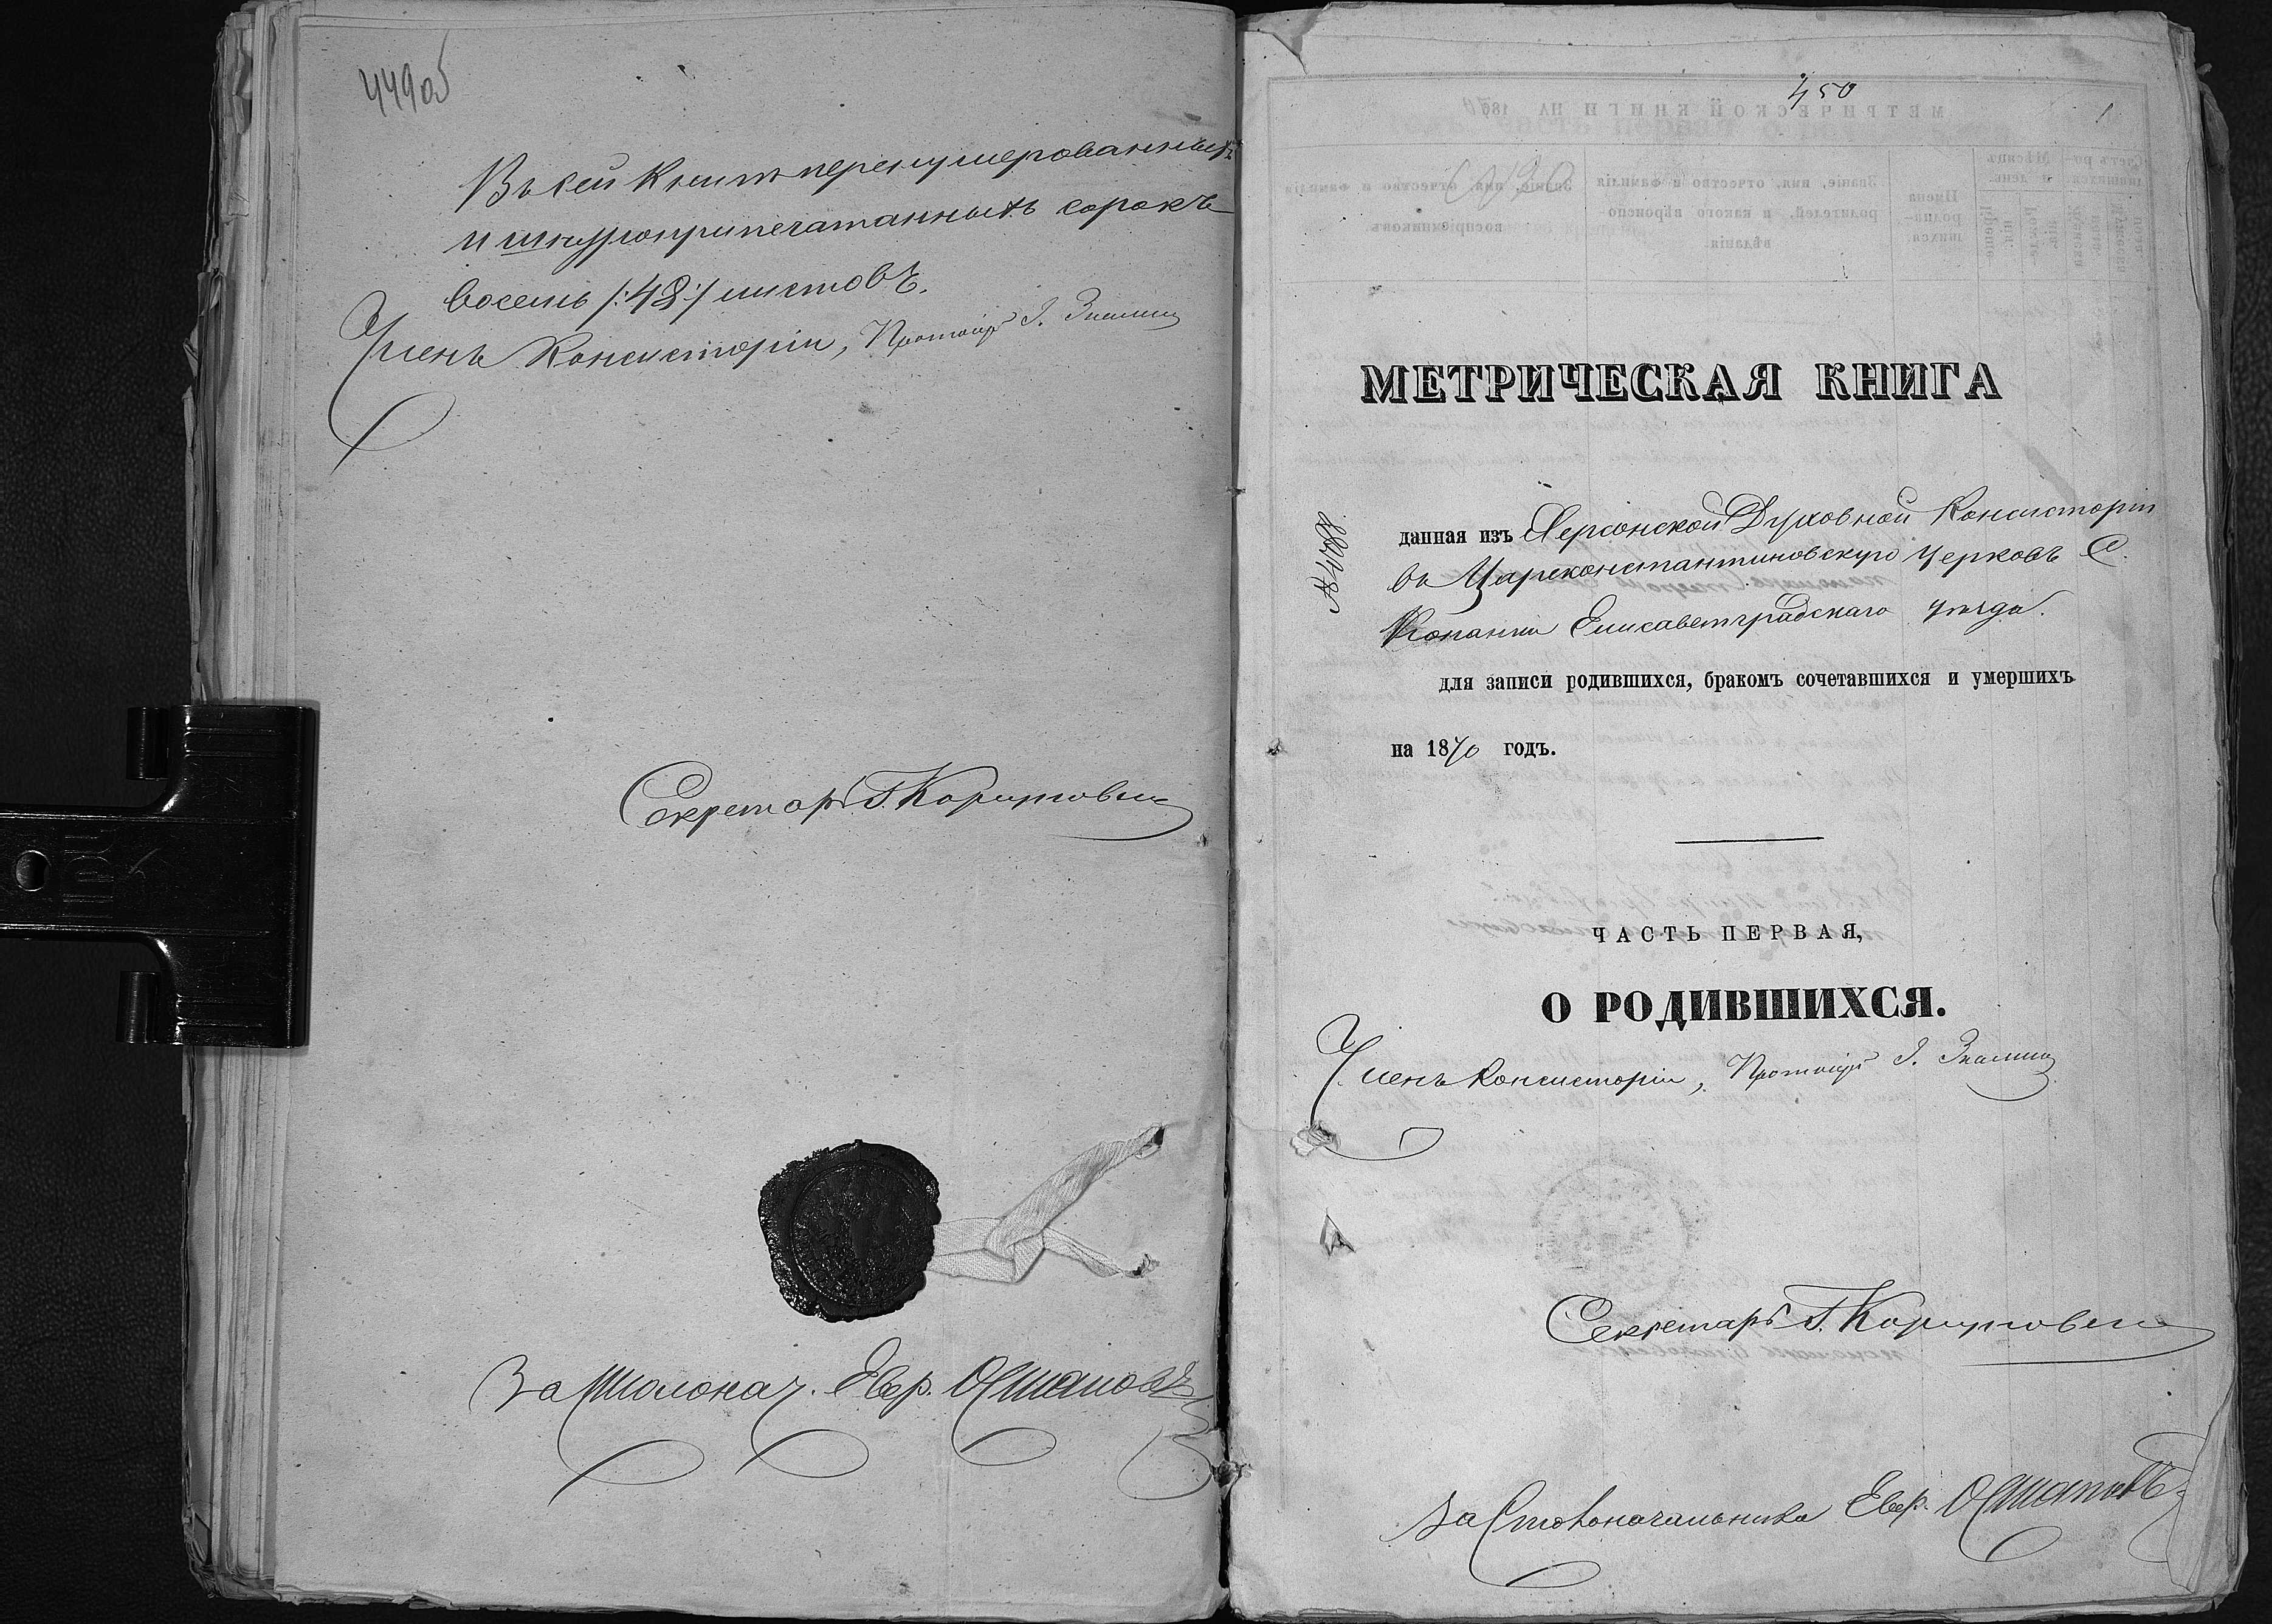 449об
Въ сей книгѣ перенумерованныхъ
и шнуроприпечатанныхъ сорокъ
восемь /:48:/ листовъ.
Членъ Консисторіи, Протоіерей І.
Секретарь Г.
За Столонач. Евфр.
450
1
МЕТРИЧЕСКАЯ КНИГА
данная изъ Херсонской Духовной Консисторіи
въ Цареконстантиновскую церковь с.
Копанки Елисаветградскаго уѣзда.
для записи родившихся, бракомъ сочетавшихся и умершихъ
на 1870 годъ.
ЧАСТЬ ПЕРВАЯ,
О РОДИВШИХСЯ.
Членъ Консисторіи, Протоіерей І.
Секретарь Г.
За Столоначальника Евфр.